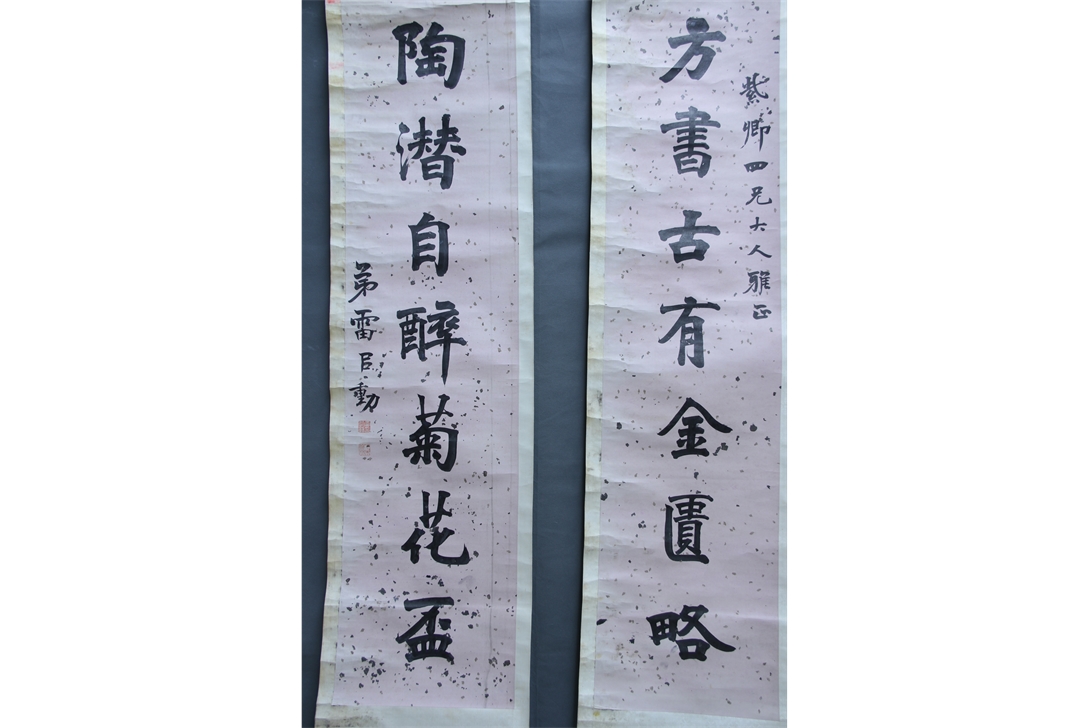 紫卿四兄大人雅正
方書古有金匱略
陶潛自醉菊花盃
弟雷臣動